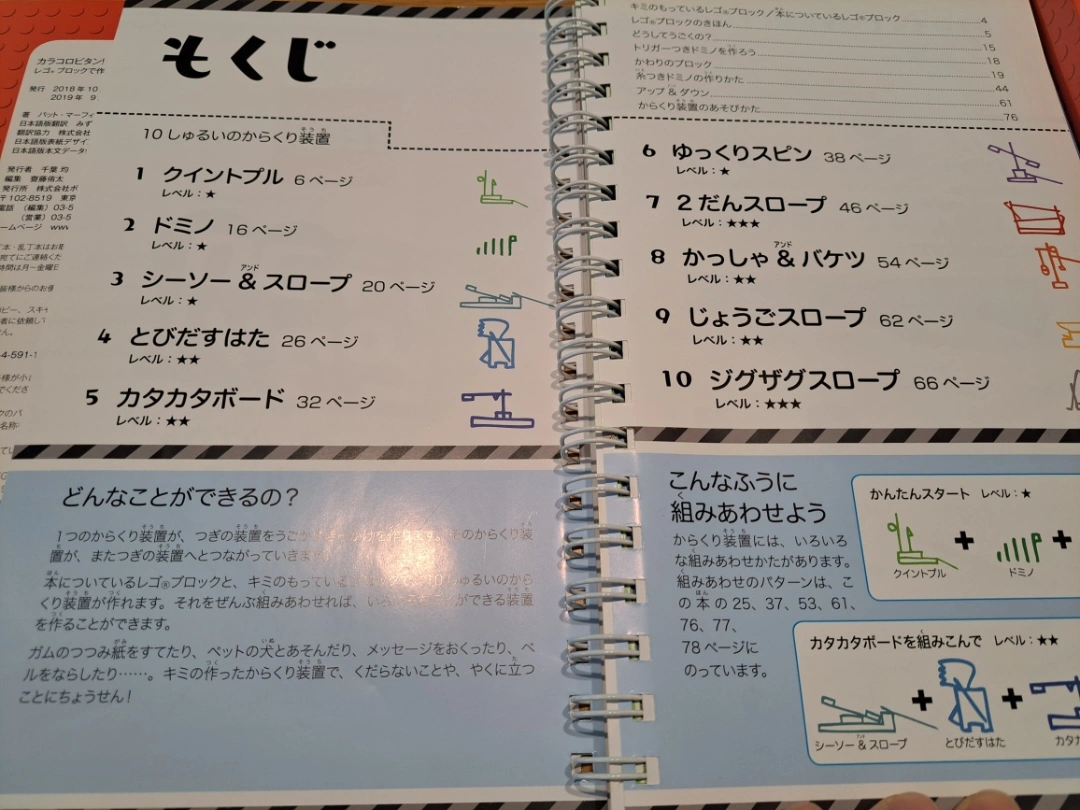 カラコロピタン!
レゴ®ブロックで作
発行 2018年10
2019年 9
著 パット・マーフィ
日本語版翻訳 みず
翻訳協力 株式会社
日本語版表紙デザイ
日本語版本文データ
発行者 千葉 均
編集 齋藤侑太
発行所 株式会社ポ
〒102-8519 東京
電話 (編集) 03-5
(営業) 03-5
ームページ www
丁本・乱丁本はお
宛てにご連絡くだ
時間は月〜金曜日
4-591-1
もくじ
10しゅるいのからくり装置
1 クイントプル 6ページ
レベル:★
2 ドミノ 16ページ
レベル:★
3 シーソー&スロープ 20ページ
レベル:★
4 とびだすはた 26ページ
レベル:★★
5 カタカタボード 32ページ
レベル:★★
どんなことができるの?
1つのからくり装置が、つぎの装置をうご
置が、またつぎの装置へとつながっていきま
本についているレゴ®ブロックと、キミのもっている 10しゅるいのから
くり装置が作れます。それをぜんぶ組みあわせれば、いろ ができる装置
を作ることができます。
ガムのつつみ紙をすてたり、ペットの犬とあそんだり、メッセージをおくったり、ベ
ルをならしたり……。キミの作ったからくり装置で、くだらないことや、やくに立つ
ことにちょうせん!
キミのもっているレゴ®ブロック/本についているレゴ®ブロック 4
レゴ®ブロックのきほん 5
どうしてうごくの? 15
トリガーつきドミノを作ろう 18
かわりのブロック 19
糸つきドミノの作りかた 44
アップ&ダウン 61
からくり装置のあそびかた 76
6 ゆっくりスピン 38ページ
レベル:★
7 2だんスロープ 46ページ
レベル:★★★
8 かっしゃ&バケツ 54ページ
レベル:★★
9 じょうごスロープ 62ページ
レベル:★★
10 ジグザグスロープ 66ページ
レベル:★★★
こんなふうに
組みあわせよう
からくり装置には、いろいろ
な組みあわせかたがあります。
組みあわせのパターンは、こ
の本の25、37、53、61、
76、77、
78ページに
のっています。
かんたんスタート レベル:★
クイントプル + ドミノ +
カタカタボードを組みこんで レベル:★★
シーソー&スロープ + とびだすはた + カタカ